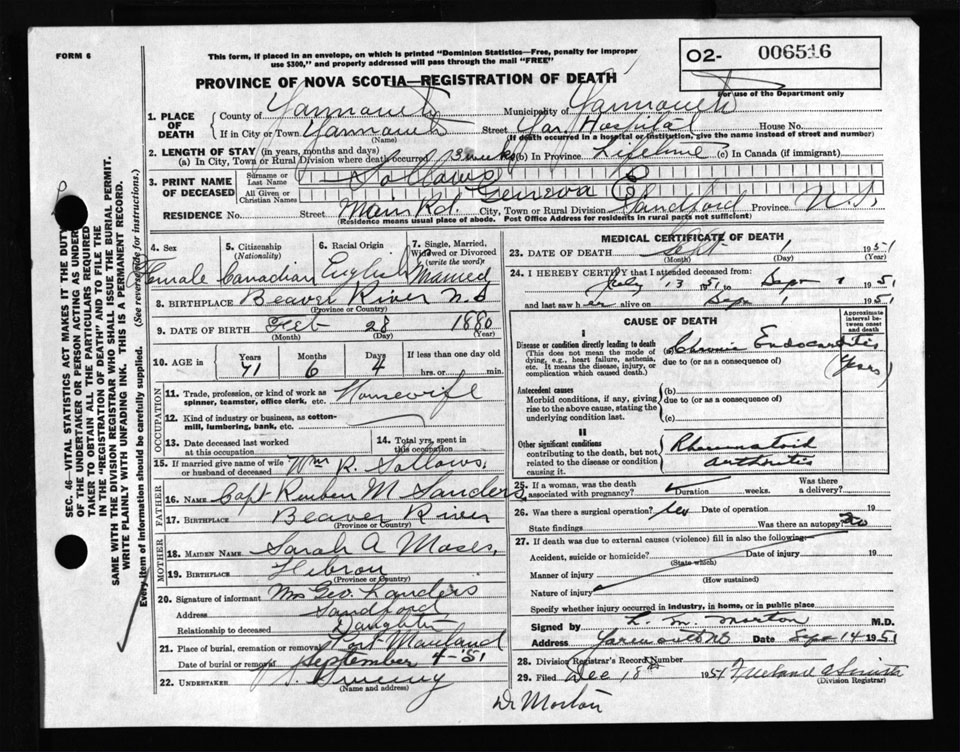 FORM 6
This form, if placed in an envelope, on which is printed "Dominion Statistics—Free, penalty for improper
use $300," and properly addressed will pass through the mail "FREE"
O2- 006516
For use of the Department only
PROVINCE OF NOVA SCOTIA—REGISTRATION OF DEATH
1. PLACE OF DEATH
County of Yarmouth Municipality of Yarmouth
If in City or Town Yarmouth Street Yar. Hospital House No.
(Name) (If death occurred in a hospital or institution, give the name instead of street and number)
2. LENGTH OF STAY (in years, months and days)
(a) In City, Town or Rural Division where death occurred 3 weeks (b) In Province Lifetime (c) In Canada (if immigrant)
3. PRINT NAME OF DECEASED
Surname or Last Name Sollows
All Given or Christian Names Geneva E
RESIDENCE No. Street Main Rd. City, Town or Rural Division Sandford Province N.S.
(Residence means usual place of abode. Post Office Address for residents in rural parts not sufficient)
4. Sex Female
5. Citizenship (Nationality) Canadian
6. Racial Origin English
7. Single, Married, Widowed or Divorced (write the word) Married
8. BIRTHPLACE Beaver River N.S
(Province or Country)
9. DATE OF BIRTH Feb 28 1880
(Month) (Day) (Year)
10. AGE in Years 71 Months 6 Days 4 If less than one day old hrs. or min.
OCCUPATION
11. Trade, profession, or kind of work as spinner, teamster, office clerk, etc. Housewife
12. Kind of industry or business, as cotton-mill, lumbering, bank, etc.
13. Date deceased last worked at this occupation
14. Total yrs. spent in this occupation
15. If married give name of wife or husband of deceased Wm R. Sollows.
FATHER
16. NAME Capt Reuben M Sanders.
17. BIRTHPLACE Beaver River
(Province or Country)
MOTHER
18. MAIDEN NAME Sarah A Moses.
19. BIRTHPLACE Hebron
(Province or Country)
20. Signature of informant Mrs Geo. Landers
Address Sandford
Relationship to deceased Daughter
21. Place of burial, cremation or removal Port Maitland
Date of burial or removal September 4-51
22. UNDERTAKER Sweeny
(Name and address)
MEDICAL CERTIFICATE OF DEATH
23. DATE OF DEATH Sept 1 1951
(Month) (Day) (Year)
24. I HEREBY CERTIFY that I attended deceased from:
July 13 1951 to Sept 1 1951
and last saw her alive on Sept 1 1951
CAUSE OF DEATH
Approximate interval between onset and death
I
Disease or condition directly leading to death
(This does not mean the mode of dying, e.g., heart failure, asthenia, etc. It means the disease, injury, or complication which caused death.)
(a) Chronic Endocarditis (Years)
due to (or as a consequence of)
Antecedent causes
Morbid conditions, if any, giving rise to the above cause, stating the underlying condition last.
(b)
due to (or as a consequence of)
(c)
II
Other significant conditions
contributing to the death, but not related to the disease or condition causing it.
Rheumatoid arthritis
25. If a woman, was the death associated with pregnancy? Duration weeks. Was there a delivery?
26. Was there a surgical operation? Date of operation 19
State findings Was there an autopsy? No
27. If death was due to external causes (violence) fill in also the following:—
Accident, suicide or homicide? Date of injury 19
(State which)
Manner of injury
(How sustained)
Nature of injury
Specify whether injury occurred in industry, in home, or in public place
Signed by L. M. Morton M.D.
Address Yarmouth NS Date Sept 14 1951
28. Division Registrar's Record Number
29. Filed Dec 18th 1951
(Division Registrar)
Dr Morton
SEC. 46—VITAL STATISTICS ACT MAKES IT THE DUTY
OF THE UNDERTAKER OR PERSON ACTING AS UNDER-
TAKER TO OBTAIN ALL THE PARTICULARS REQUIRED
IN THE "REGISTRATION OF DEATH" AND TO FILE THE
SAME WITH THE DIVISION REGISTRAR WHO SHALL ISSUE THE BURIAL PERMIT.
WRITE PLAINLY WITH UNFADING INK. THIS IS A PERMANENT RECORD.
Every item of information should be carefully supplied. (See reverse side for instructions.)